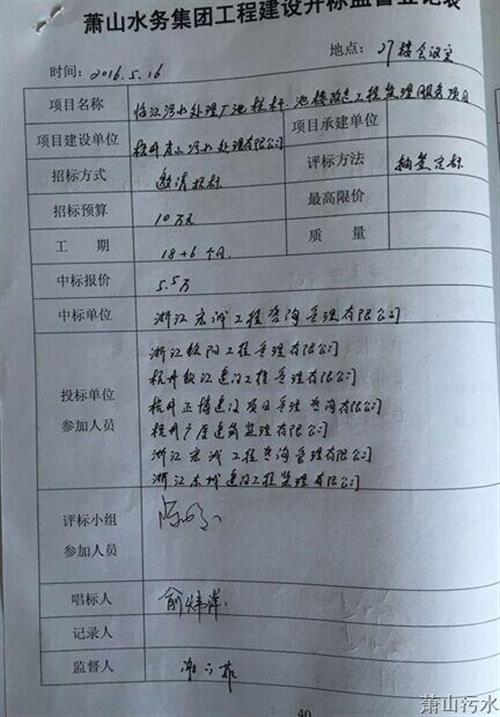 萧山水务集团工程建设开标监督登记表
时间：2016.5.16 地点：27楼会议室
项目名称 临江污水处理厂池栏杆、池楼改造工程监理服务项目
项目建设单位 杭州萧山污水处理有限公司 项目承建单位
招标方式 邀请招标 评标方法 抽签定标
招标预算 10万元 最高限价
工期 18+6个月 质量
中标报价 5.5万
中标单位 浙江宏诚工程咨询管理有限公司
投标单位
参加人员
浙江 工程管理有限公司
杭州 江建设工程管理有限公司
杭州正博建设项目管理咨询有限公司
杭州广厦建筑监理有限公司
浙江宏诚工程咨询管理有限公司
浙江东城建设工程监理有限公司
评标小组
参加人员
唱标人 俞 萍
记录人
监督人 谢
40
萧山污水